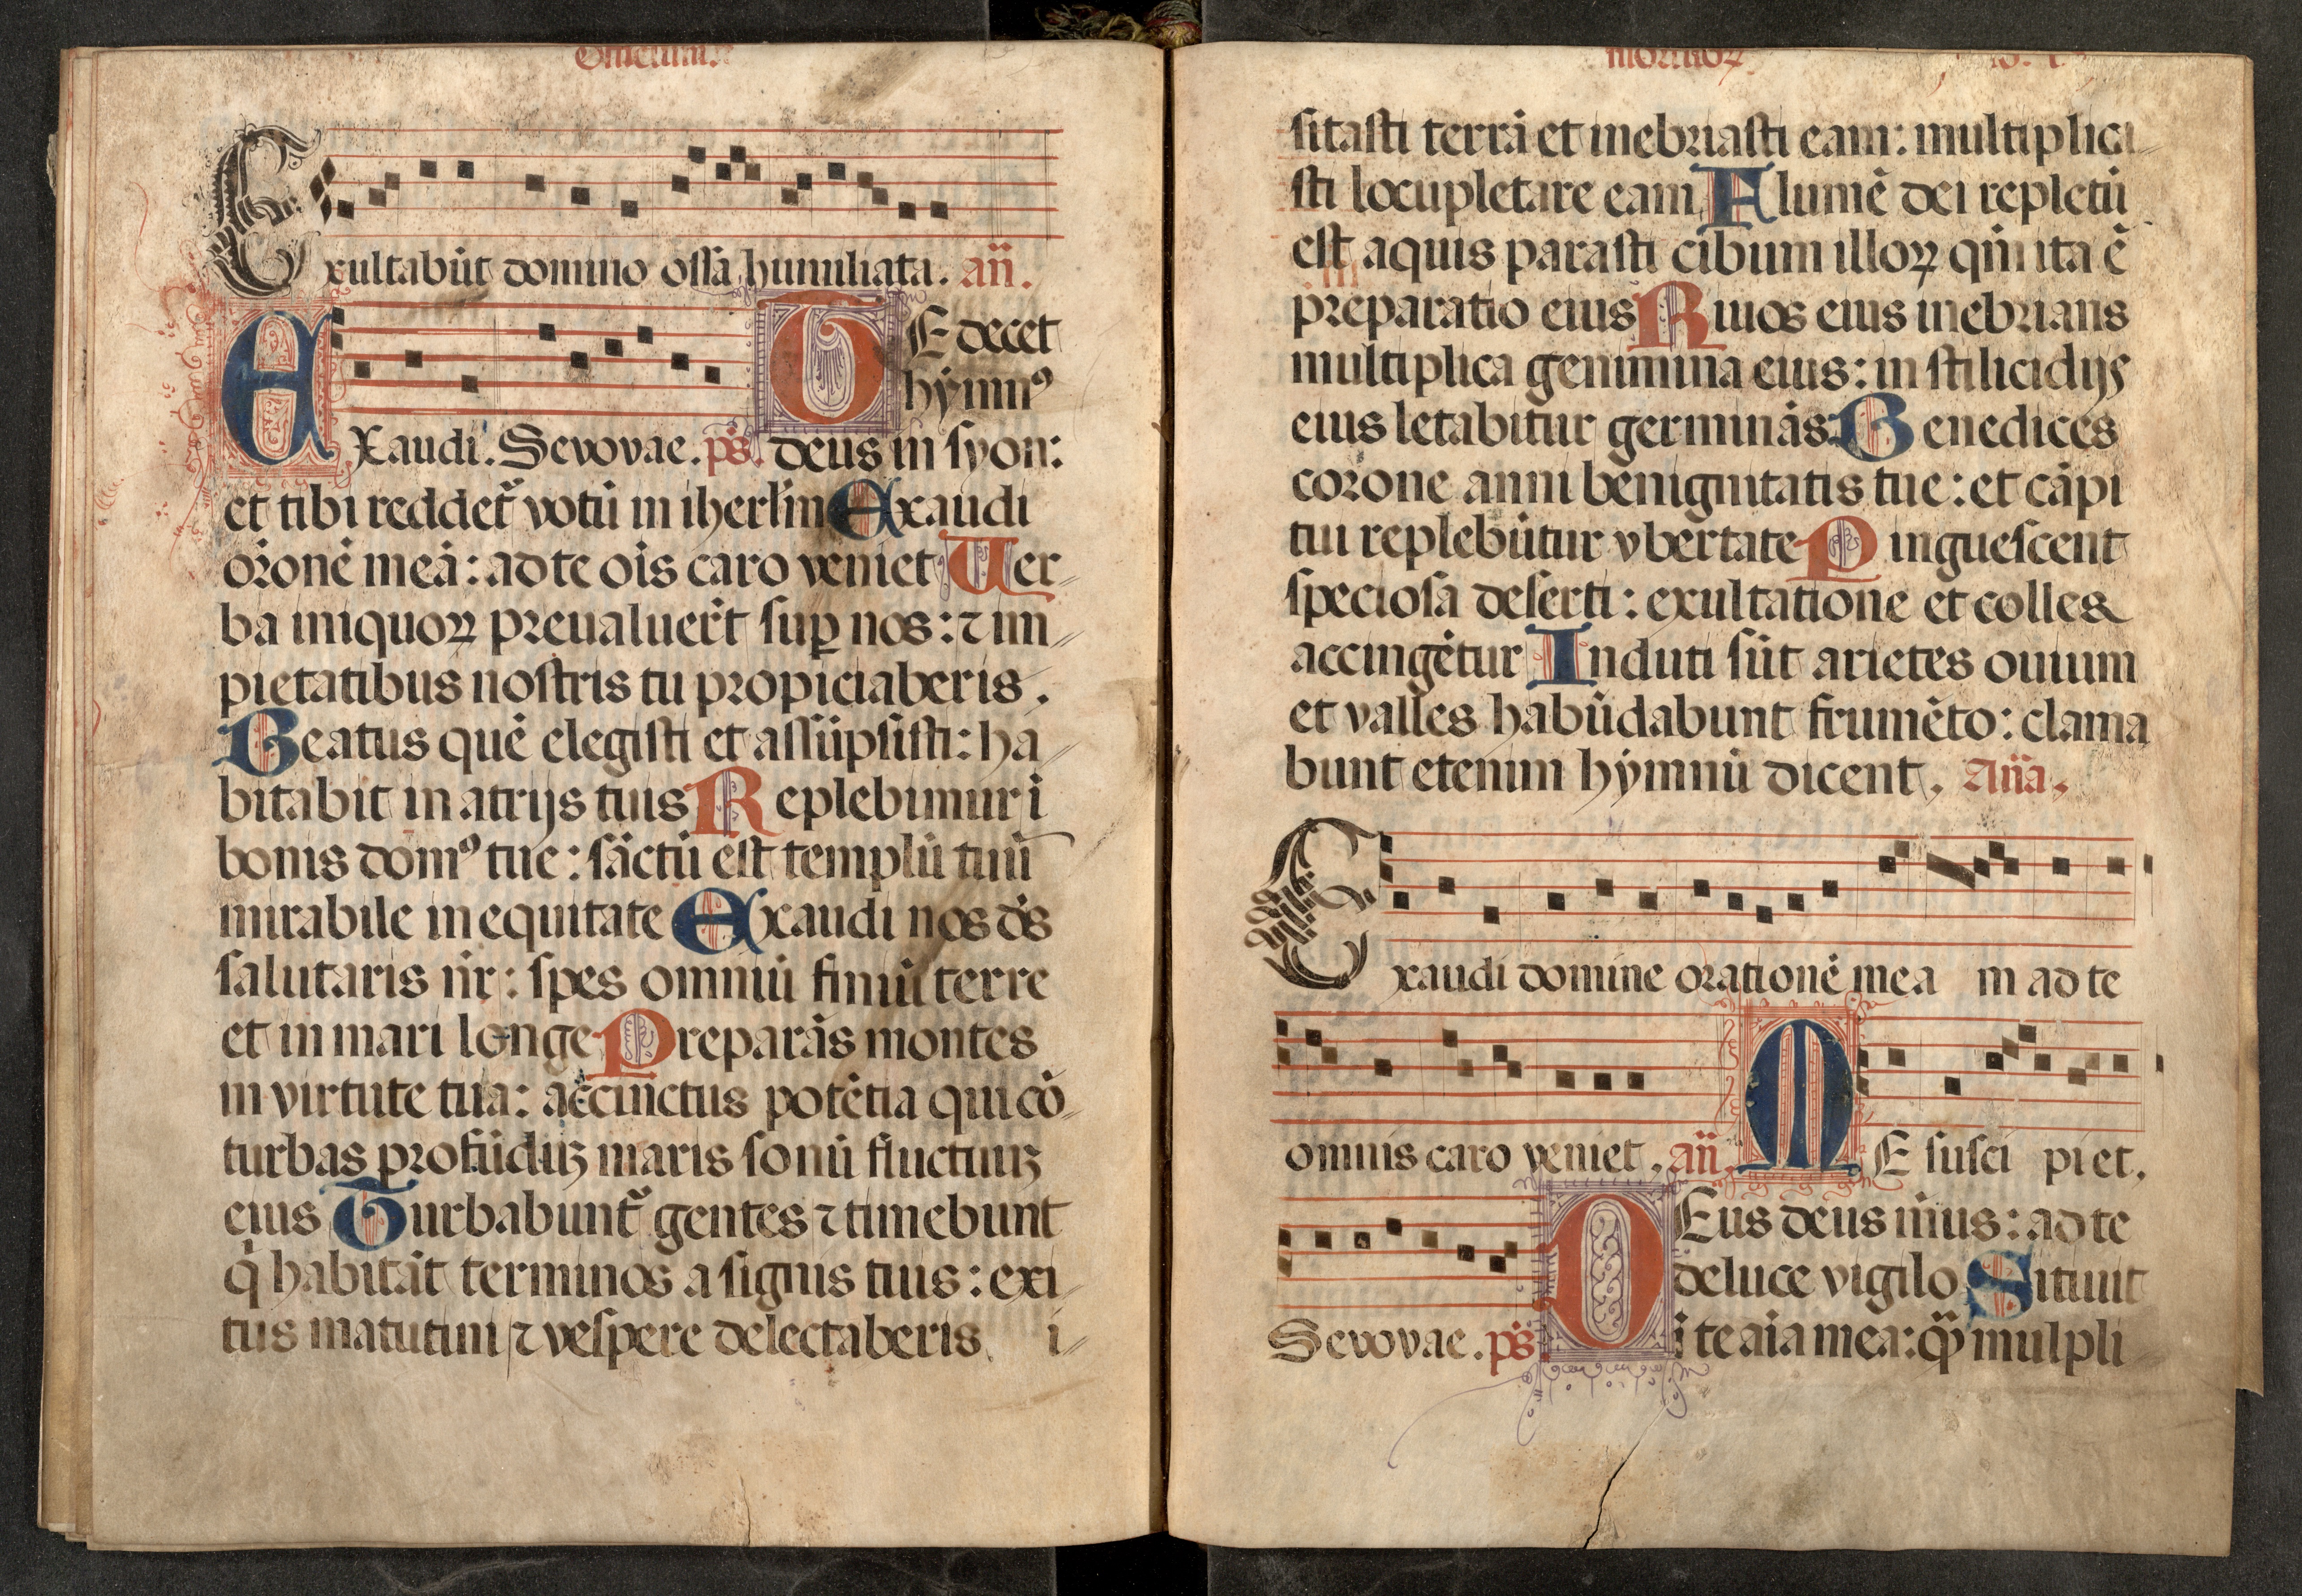 Officium
Exultabūt domino ossa humiliata. añ.
Exaudi. Sevovae. ps̄.
TE decet
hymnꝰ
deus in syon:
et tibi reddet̃ votū in iherlm̄ Exaudi
orōnē meā: ad te oīs caro veniet Uer
ba iniquoꝝ preualuer̄t suꝑ nos: ⁊ im
pietatibus nostris tu propiciaberis.
Beatus quē elegisti et assūpsisti: ha
bitabit in atrijs tuis Replebimur ī
bonis domꝰ tue: sāctū est templū tuū
mirabile in equitate Exaudi nos dс̄
salutaris nr̄: spes omniū finiū terre
et in mari longe Preparās montes
in virtute tua: accinctus potētia qui cō
turbas profūdūȝ maris sonū fluctuuȝ
eius Turbabunt̃ gentes ⁊ timebunt
q̇ habitāt terminos a signis tuis: exi
tus matutini ⁊ vespere delectaberis. i
mortuoꝝ
sitasti terrā et inebriasti eam: multiplica
sti locupletare eam Flumē dei repletū
est aquis parasti cibum illoꝝ qm̄ ita ē
preparatio eius Riuos eius inebrians
multiplica genimina eius: in stilicidijs
eius letabitur germinās Benedices
corone anni benignitatis tue: et cāpi
tui replebūtur vbertate Pinguescent
speciosa deserti: exultatione et colles
accingētur Induti sūt arietes ouium
et valles habūdabunt frumēto: clama
bunt etenim hymnū dicent. Aña.
Exaudi domine orationē mea m ad te
omnis caro veniet. añ. ME susci piet.
Sevovae. ps̄.
DEus deus m̄us: ad te
de luce vigilo Sitiuit
ī te aīa mea: q̄ꝫ mulpli